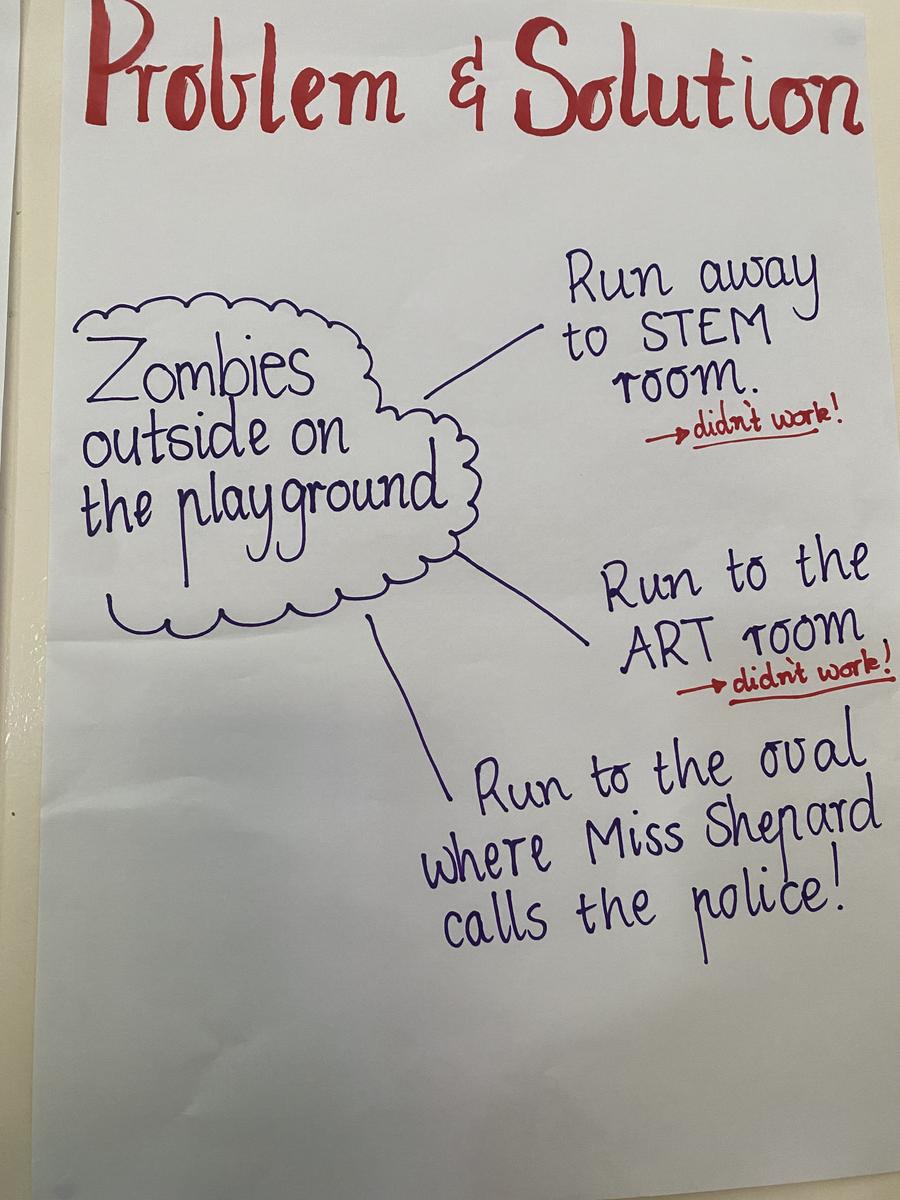 Problem & Solution
Zombies
outside on
the playground
Run away
to STEM
room.
→ didn't work!
Run to the
ART room
→ didn't work!
Run to the oval
where Miss Shepard
calls the police!